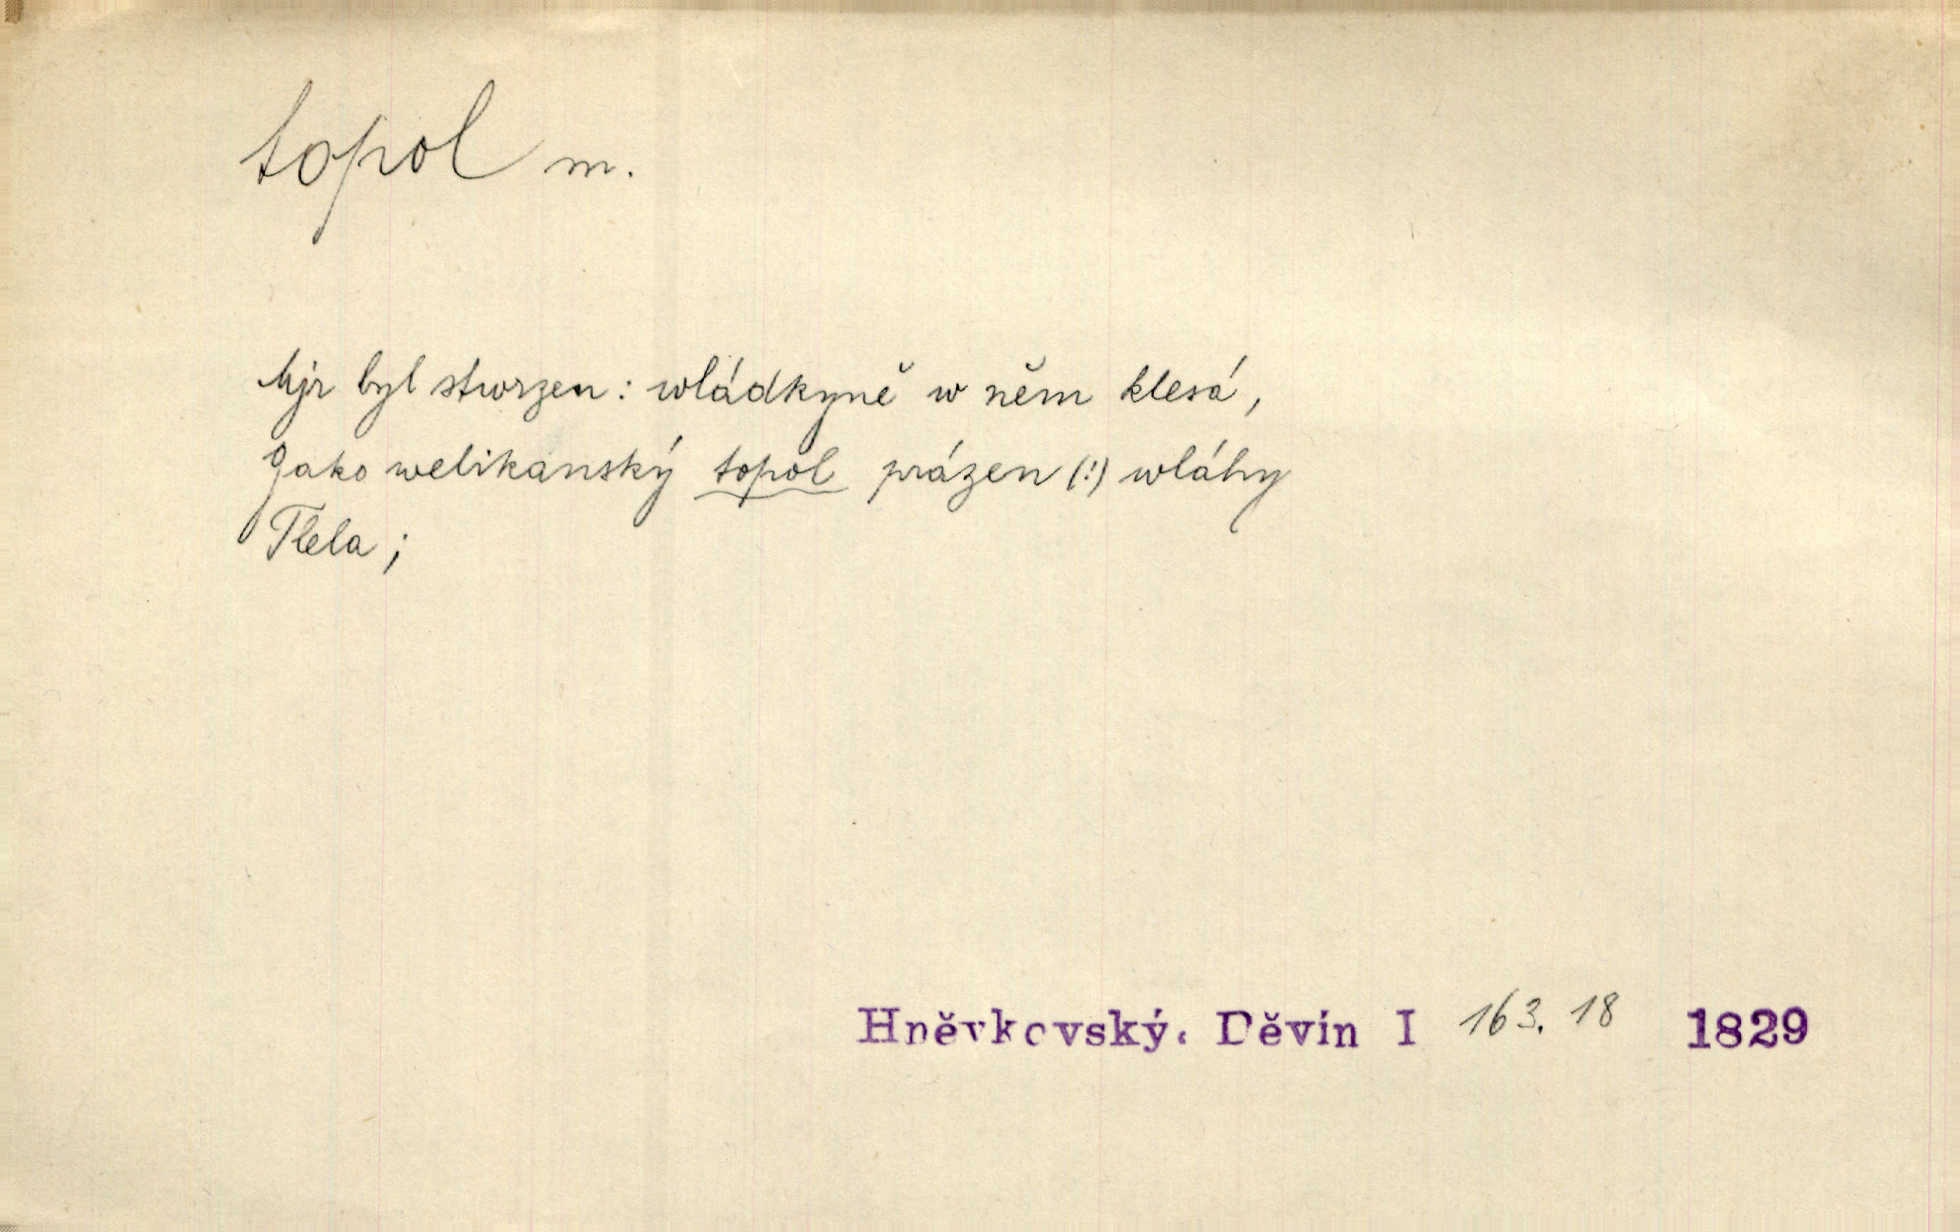 topol m.
Mjr byl stwrzen: wládkyně w něm klesá,
Gako welikánský topol prázen (!) wláhy
Tlela;
Hněvkovský. Děvín I 163. 18 1829